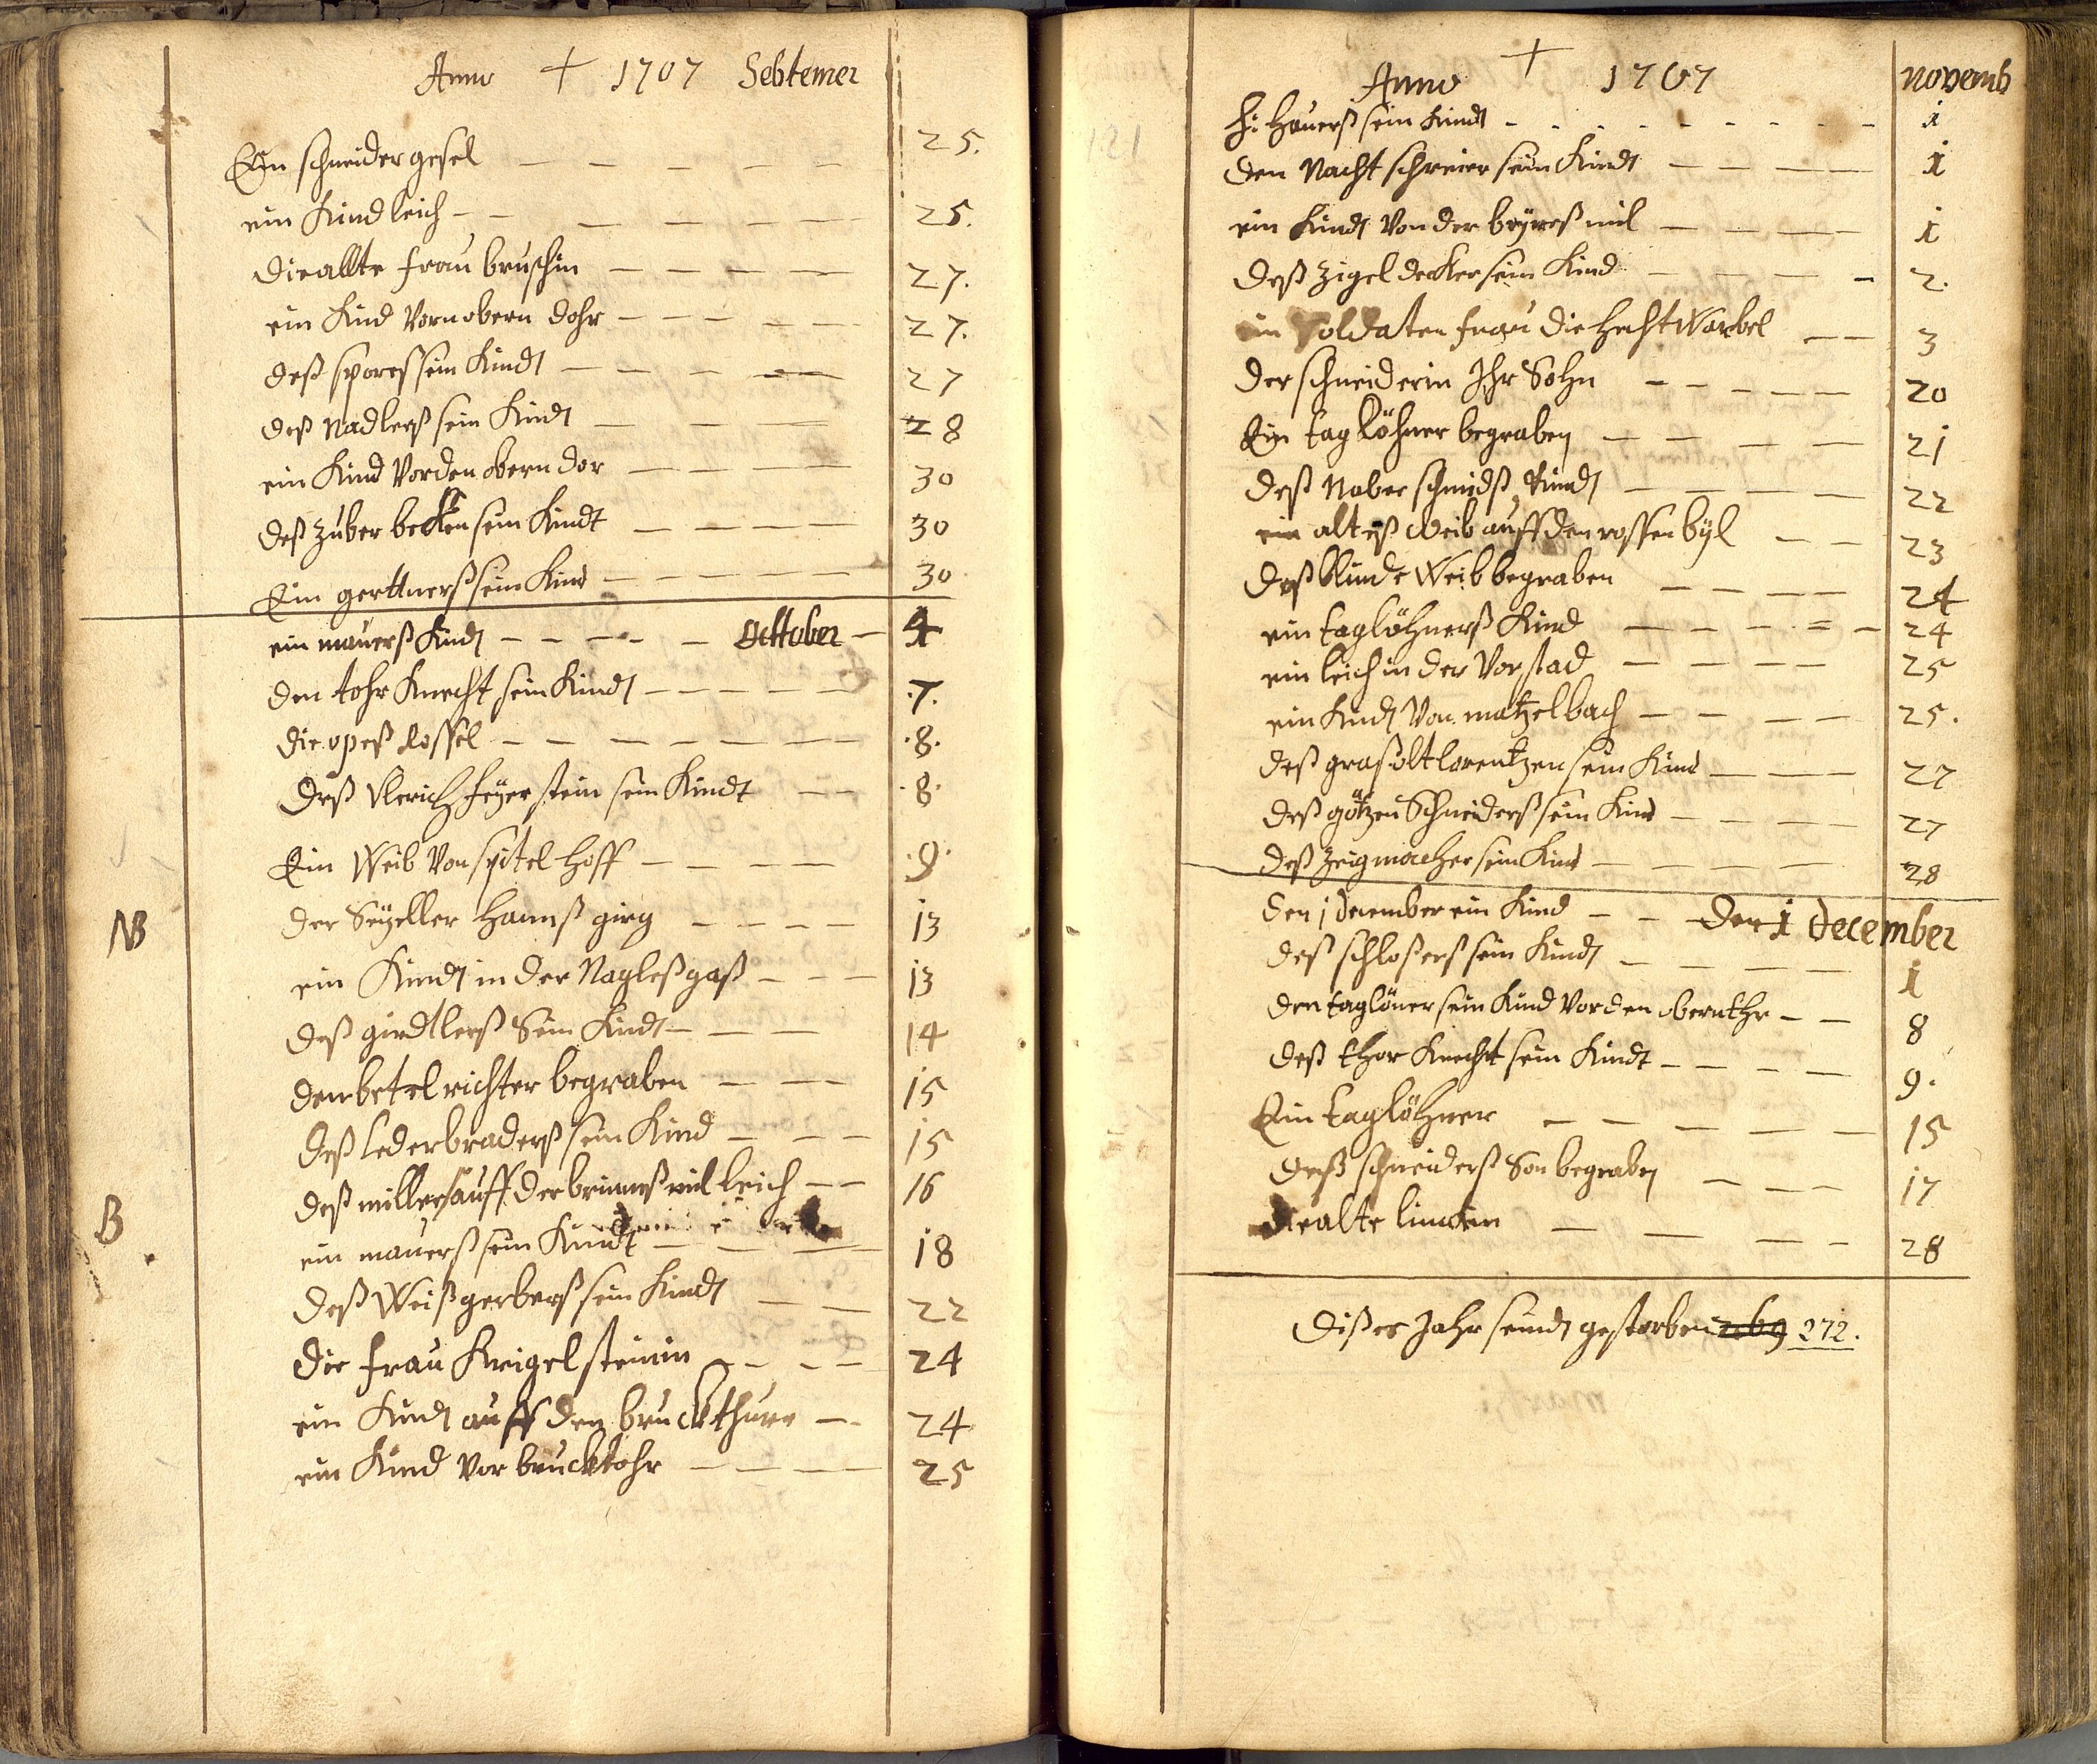 Anno + 1707 Sebtemer
Ein schneider gesel 25.
ein Kind leich 25.
die allte frau bruschin 27.
ein Kind Vorn obern dohr 27.
deß spores sein Kindt 27
deß Nadlerß sein Kindt 28
ein Kind Vor den obern dor 30
deß zuber becken sein Kindt 30
Ein gerttnerß sein Kind 30
ein maurerß Kindt October 4
den tohr Knecht sein Kindt 7.
die opeß Rossel 8.
deß Vlerich feyer stein sein Kindt 8.
Ein Weib Von spitel hoff 9.
NB der Seyeller hannß girg 13
ein Kindt in der Nagleßgaß 13
deß girdtlerß Sein Kindt 14
den betel richter begraben 15
deß Lederbraderß sein Kind 15
deß millers auff der brunneß mil leich 16
B ein maurerß sein Kindt 18
deß Weißgerberß sein Kindt 22
die frau Krigelsteinin 24
ein Kindt auff den bruckthurn 24
ein Kind Vor brucktohr 25
Anno + 1707 novemb
h: hauerß sein Kindt 1
den Nacht schreier sein Kindt 1
ein Kindt Von der beyreß mil 1
deß zigel decker sein Kind 2.
ein Soldaten frau die hecht Warbel 3
der schneiderin Ihr Sohn 20
Ein taglöhner begraben 21
deß Naber schmidß Kindt 22
ein alteß Weib auff den rossenbyl 23
deß blinde Weib begraben 24
ein taglöhnerß Kind 24
ein leich in der Vorstad 25
ein Kindt Von matzelbach 25.
deß graßolt lorentzen sein Kind 27
deß götzen Schneiderß sein Kind 27
deß zeigmacher sein Kind 28
den 1 december ein Kind den 1 december
deß schloßerß sein Kindt 1
den taglöner sein Kind Vor den obern thr 8
deß thor Knecht sein Kindt 9.
Ein taglöhner 15
deß schneiderß Son begraben 17
die alte 28
dißes Jahr seindt gestorben 269 272.